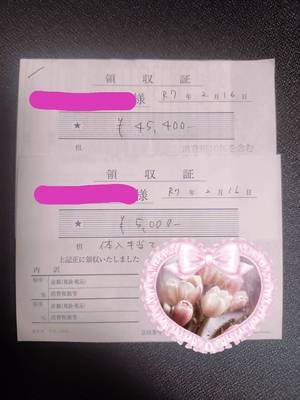 領収証
様 R7年2月16日
★ ¥45,400-
但 消費税10%を含む
領収証
様 R7年2月16日
★ ¥5,000-
但 体入手当て
上記正に領収いたしました
内 訳
税率 金額(税抜・税込)
% 消費税額等
税率 金額(税抜・税込)
% 消費税額等